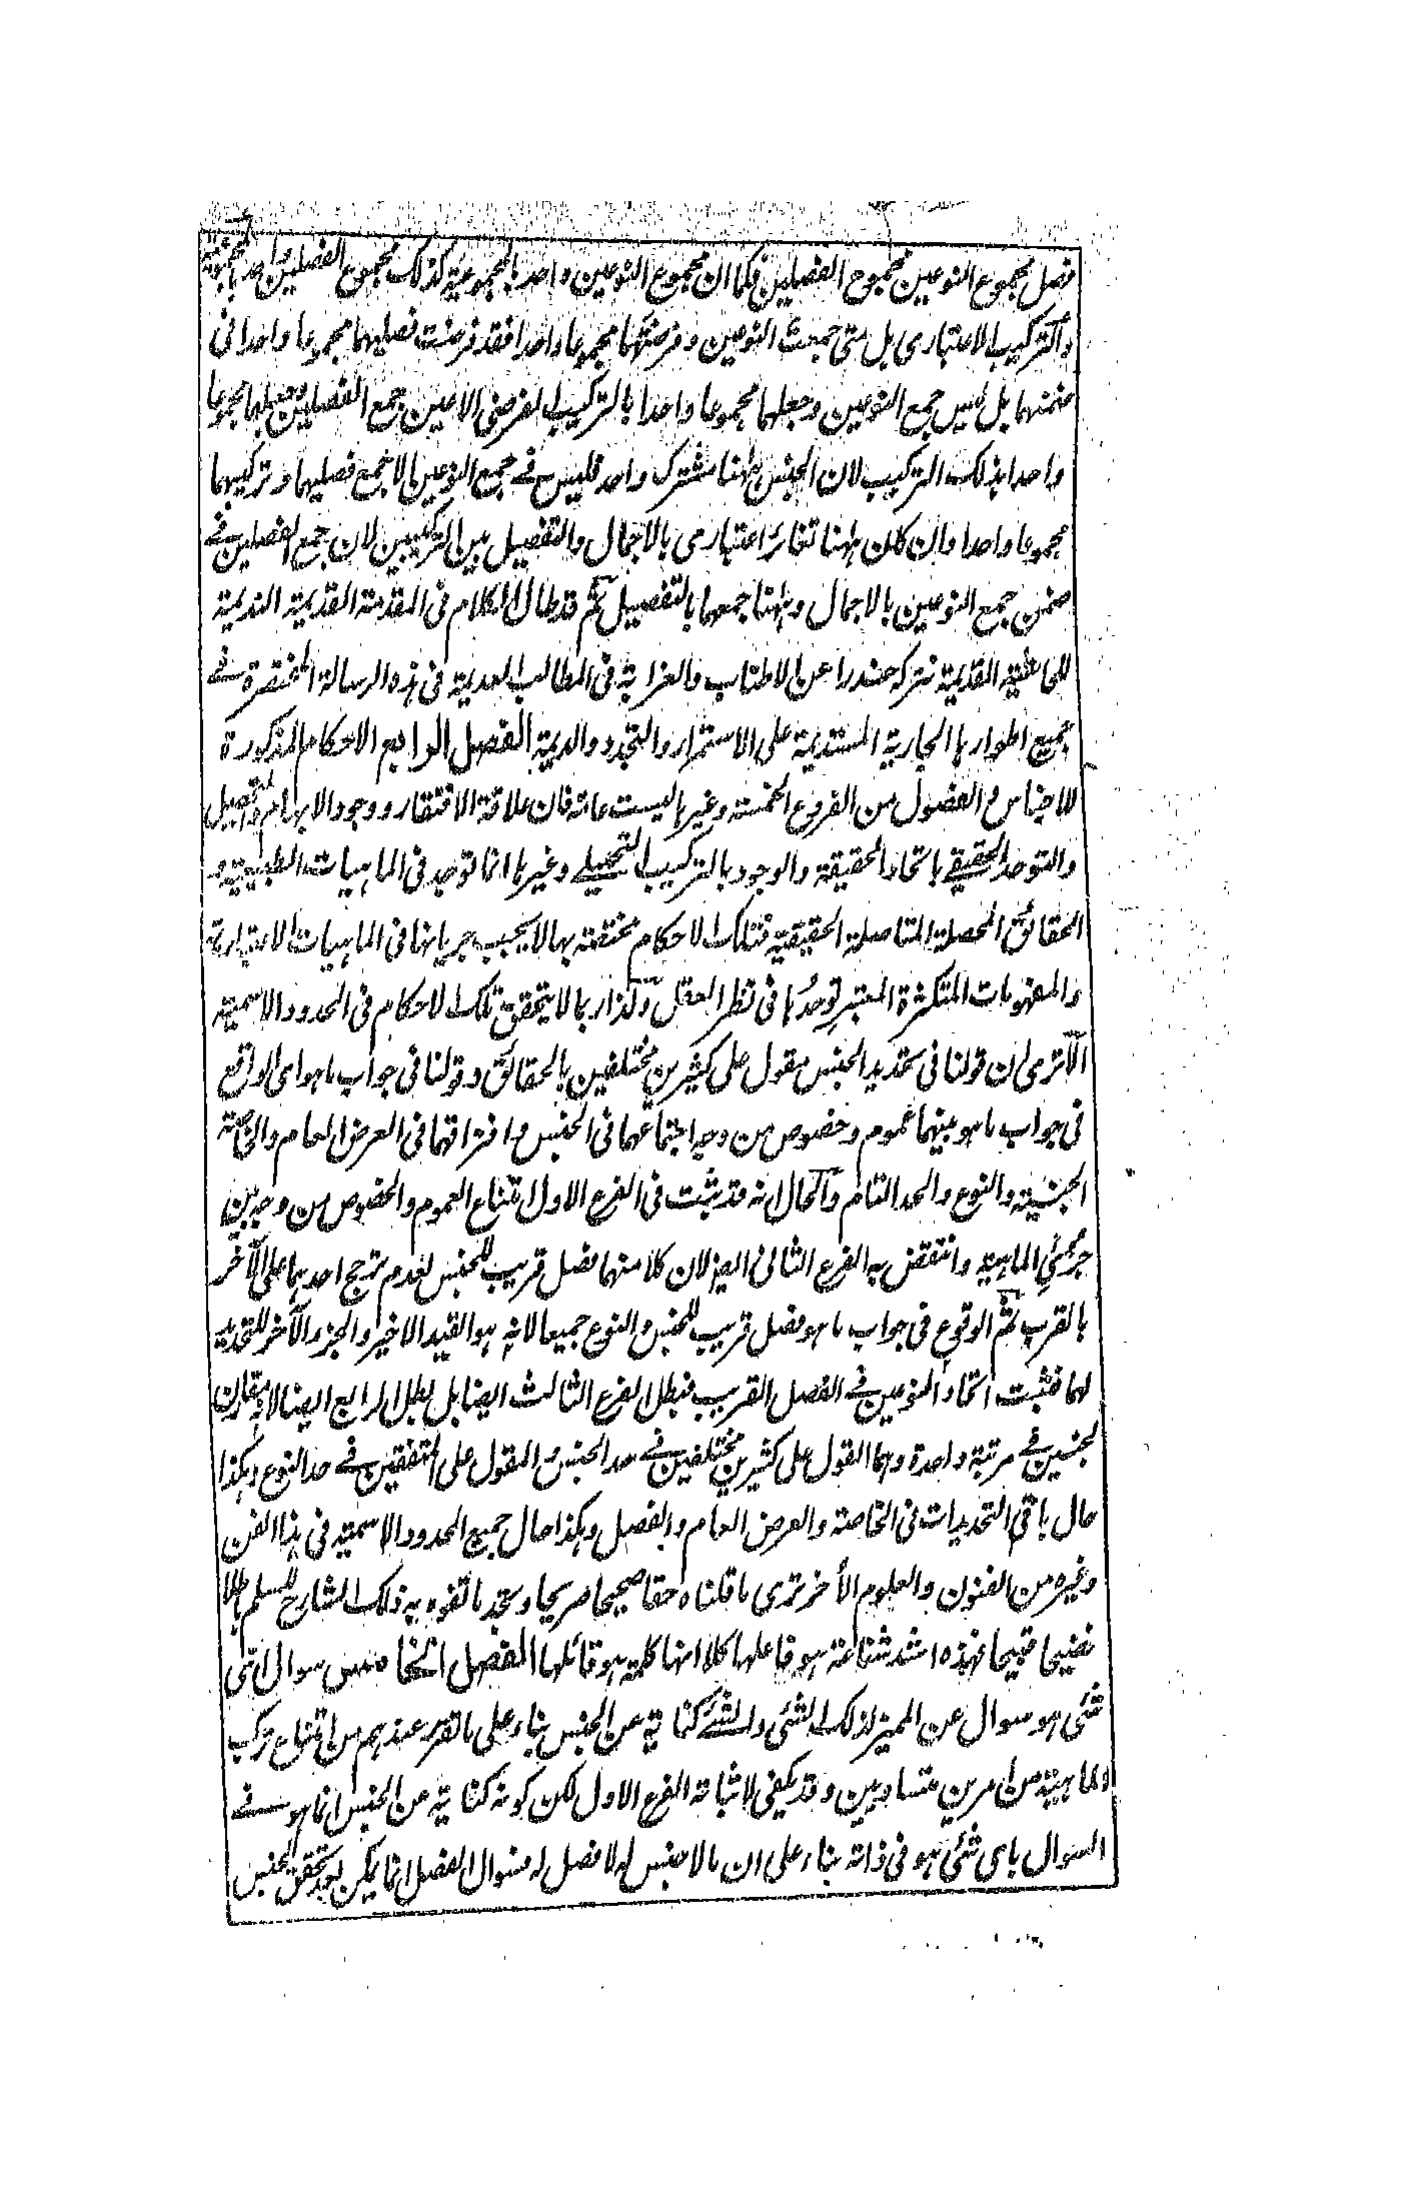 فصل مجموع النوعين مجموع الفصلين فكما ان مجموع النوعين واحد بالمجموعية كذلك مجموع الفصلين واحد بالمجموعية
والتركيب الاعتبارى بل متى جمعت النوعين وفرضتهما مجموعا واحدا فقد فرضت فصليهما مجموعا واحدا فى
ضمنهما بل ليس جمع النوعين وجعلهما مجموعا واحدا بالتركيب الفرضى الا عين جمع الفصلين وجعلهما مجموعا
واحدا بذلك التركيب لان الجنس ههنا مشترك واحد فليس فى جمع النوعين الا جمع فصليهما وتركيبهما
مجموعا واحدا وان كان ههنا تغائر اعتبارى بالاجمال والتفصيل بين التركيبين لان جمع الفصلين فى
ضمن جمع النوعين بالاجمال وههنا جمعهما بالتفصيل ثم قد طال الكلام فى المقدمة القديمة
للحاشية القديمة نتركه حذرا عن الاطناب والغرابة فى المطالب العديمة فى هذه الرسالة المختصرة فى
جميع اطوارها الجارية المستديمة على الاستمرار والتجدد والديمة الفصل الرابع الاحكام المذكورة
للاجناس والفصول من الفروع الخمسة وغيرها ليست عامة فان علاقة الافتقار ووجود الابهام والتحصيل
والتوحد الحقيقى باتحاد الحقيقة والوجود بالتركيب التحليلى وغيرها انما توجد فى الماهيات الطبيعية و
الحقائق المحصلة المتاصلة الحقيقية فتلك الاحكام مختصة بها لا يجب جريانها فى الماهيات الاعتبارية
والمفهومات المتكثرة المعتبر توحدها فى نظر العقل ولذا ربما لا يتحقق تلك الاحكام فى الحدود الاسمية
الا ترى ان قولنا فى تحديد الجنس مقول على كثيرين مختلفين بالحقائق وقولنا فى جواب ما هو اى الواقع
فى جواب ما هو بينهما عموم وخصوص من وجه اجتماعهما فى الجنس وافتراقهما فى العرض العام والخاصة
الجنسية والنوع والحد التام والحال انه قد ثبت فى الفرع الاول امتناع العموم والخصوص من وجه بين
جزئى الماهية وانتقض به الفرع الثانى ايضا لان كلا منهما فصل قريب للجنس لعدم ترجح احدهما على الآخر
بالقرب ثم الوقوع فى جواب ما هو فصل قريب للجنس والنوع جميعا لانه هو القيد الاخير والجزء الآخر للتحديد
لهما فثبت اتحاد النوعين فى الفصل القريب فبطل الفرع الثالث ايضا بل بطل الرابع ايضا لانه مقارن
لجنسين فى مرتبة واحدة وهما المقول على كثيرين مختلفين فى حد الجنس والمقول على المتفقين فى حد النوع وهكذا
حال باقى التحديدات فى الخاصة والعرض العام والفصل وهكذا حال جميع الحدود الاسمية فى هذا الفن
وغيره من الفنون والعلوم الأخر ترى ما قلناه حقا صحيحا صريحا وتجد ما تفوه به ذلك الشارح للسلم باطلا
فضيحا قبيحا فهذه اشد شناعة هو فاعلها كلا انها كلمة هو قائلها الفصل الخامس سوال اى
شئى هو سوال عن المميز لذلك الشئى والشئى كناية عن الجنس بناء على ما تقرر عندهم من امتناع تركب
الماهية من امرين متساويين وقد يكفى لاثباته الفرع الاول لكن كونه كناية عن الجنس انما هو فى
السوال باى شئى هو فى ذاته بناء على ان ما لا جنس له لا فصل له فسوال الفصل انما يمكن بعد تحقق الجنس